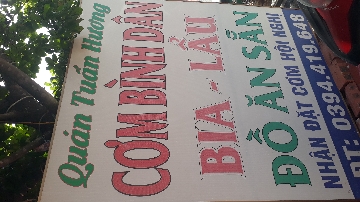 Quán Tuấn Hương
CƠM BÌNH DÂN
BIA - LẨU
ĐỒ ĂN SẴN
NHẬN ĐẶT CƠM HỘI NGHỊ
ĐT: 0394.419.648